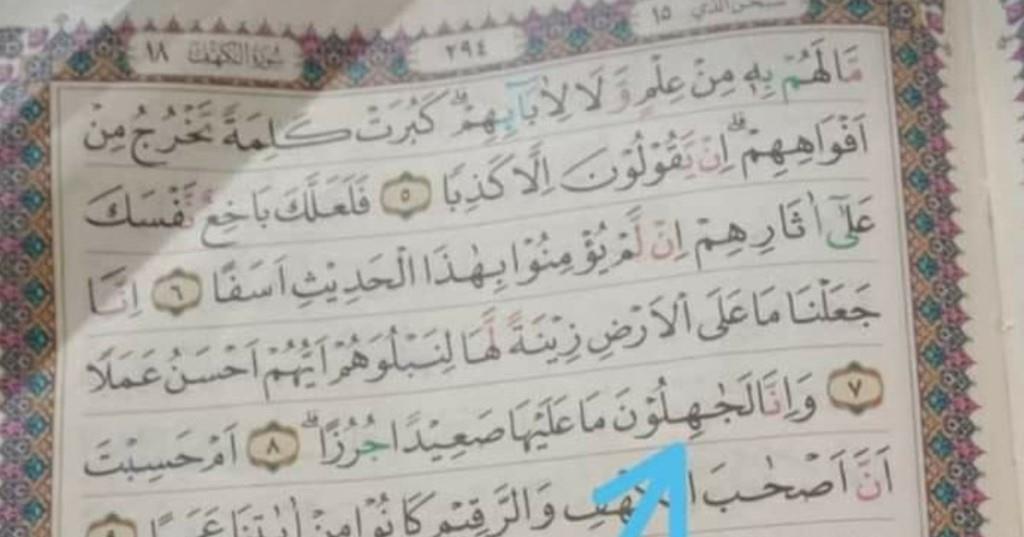 سبحن الذي ١٥ ٢٩٤ سُوْرَةُ الْكَهْفِ ١٨
مَا لَهُمْ بِهٖ مِنْ عِلْمٍ وَّلَا لِاٰبَاۤىِٕهِمْۗ كَبُرَتْ كَلِمَةً تَخْرُجُ مِنْ
اَفْوَاهِهِمْۗ اِنْ يَّقُوْلُوْنَ اِلَّا كَذِبًا ٥ فَلَعَلَّكَ بَاخِعٌ نَّفْسَكَ
عَلٰٓى اٰثَارِهِمْ اِنْ لَّمْ يُؤْمِنُوْا بِهٰذَا الْحَدِيْثِ اَسَفًا ٦ اِنَّا
جَعَلْنَا مَا عَلَى الْاَرْضِ زِيْنَةً لَّهَا لِنَبْلُوَهُمْ اَيُّهُمْ اَحْسَنُ عَمَلًا
٧ وَاِنَّا لَجٰهِلُوْنَ مَا عَلَيْهَا صَعِيْدًا جُرُزًاۗ ٨ اَمْ حَسِبْتَ
اَنَّ اَصْحٰبَ وَالرَّقِيْمِ كَانُوْا مِنْ اٰيٰتِنَا عَجَبًا ٩